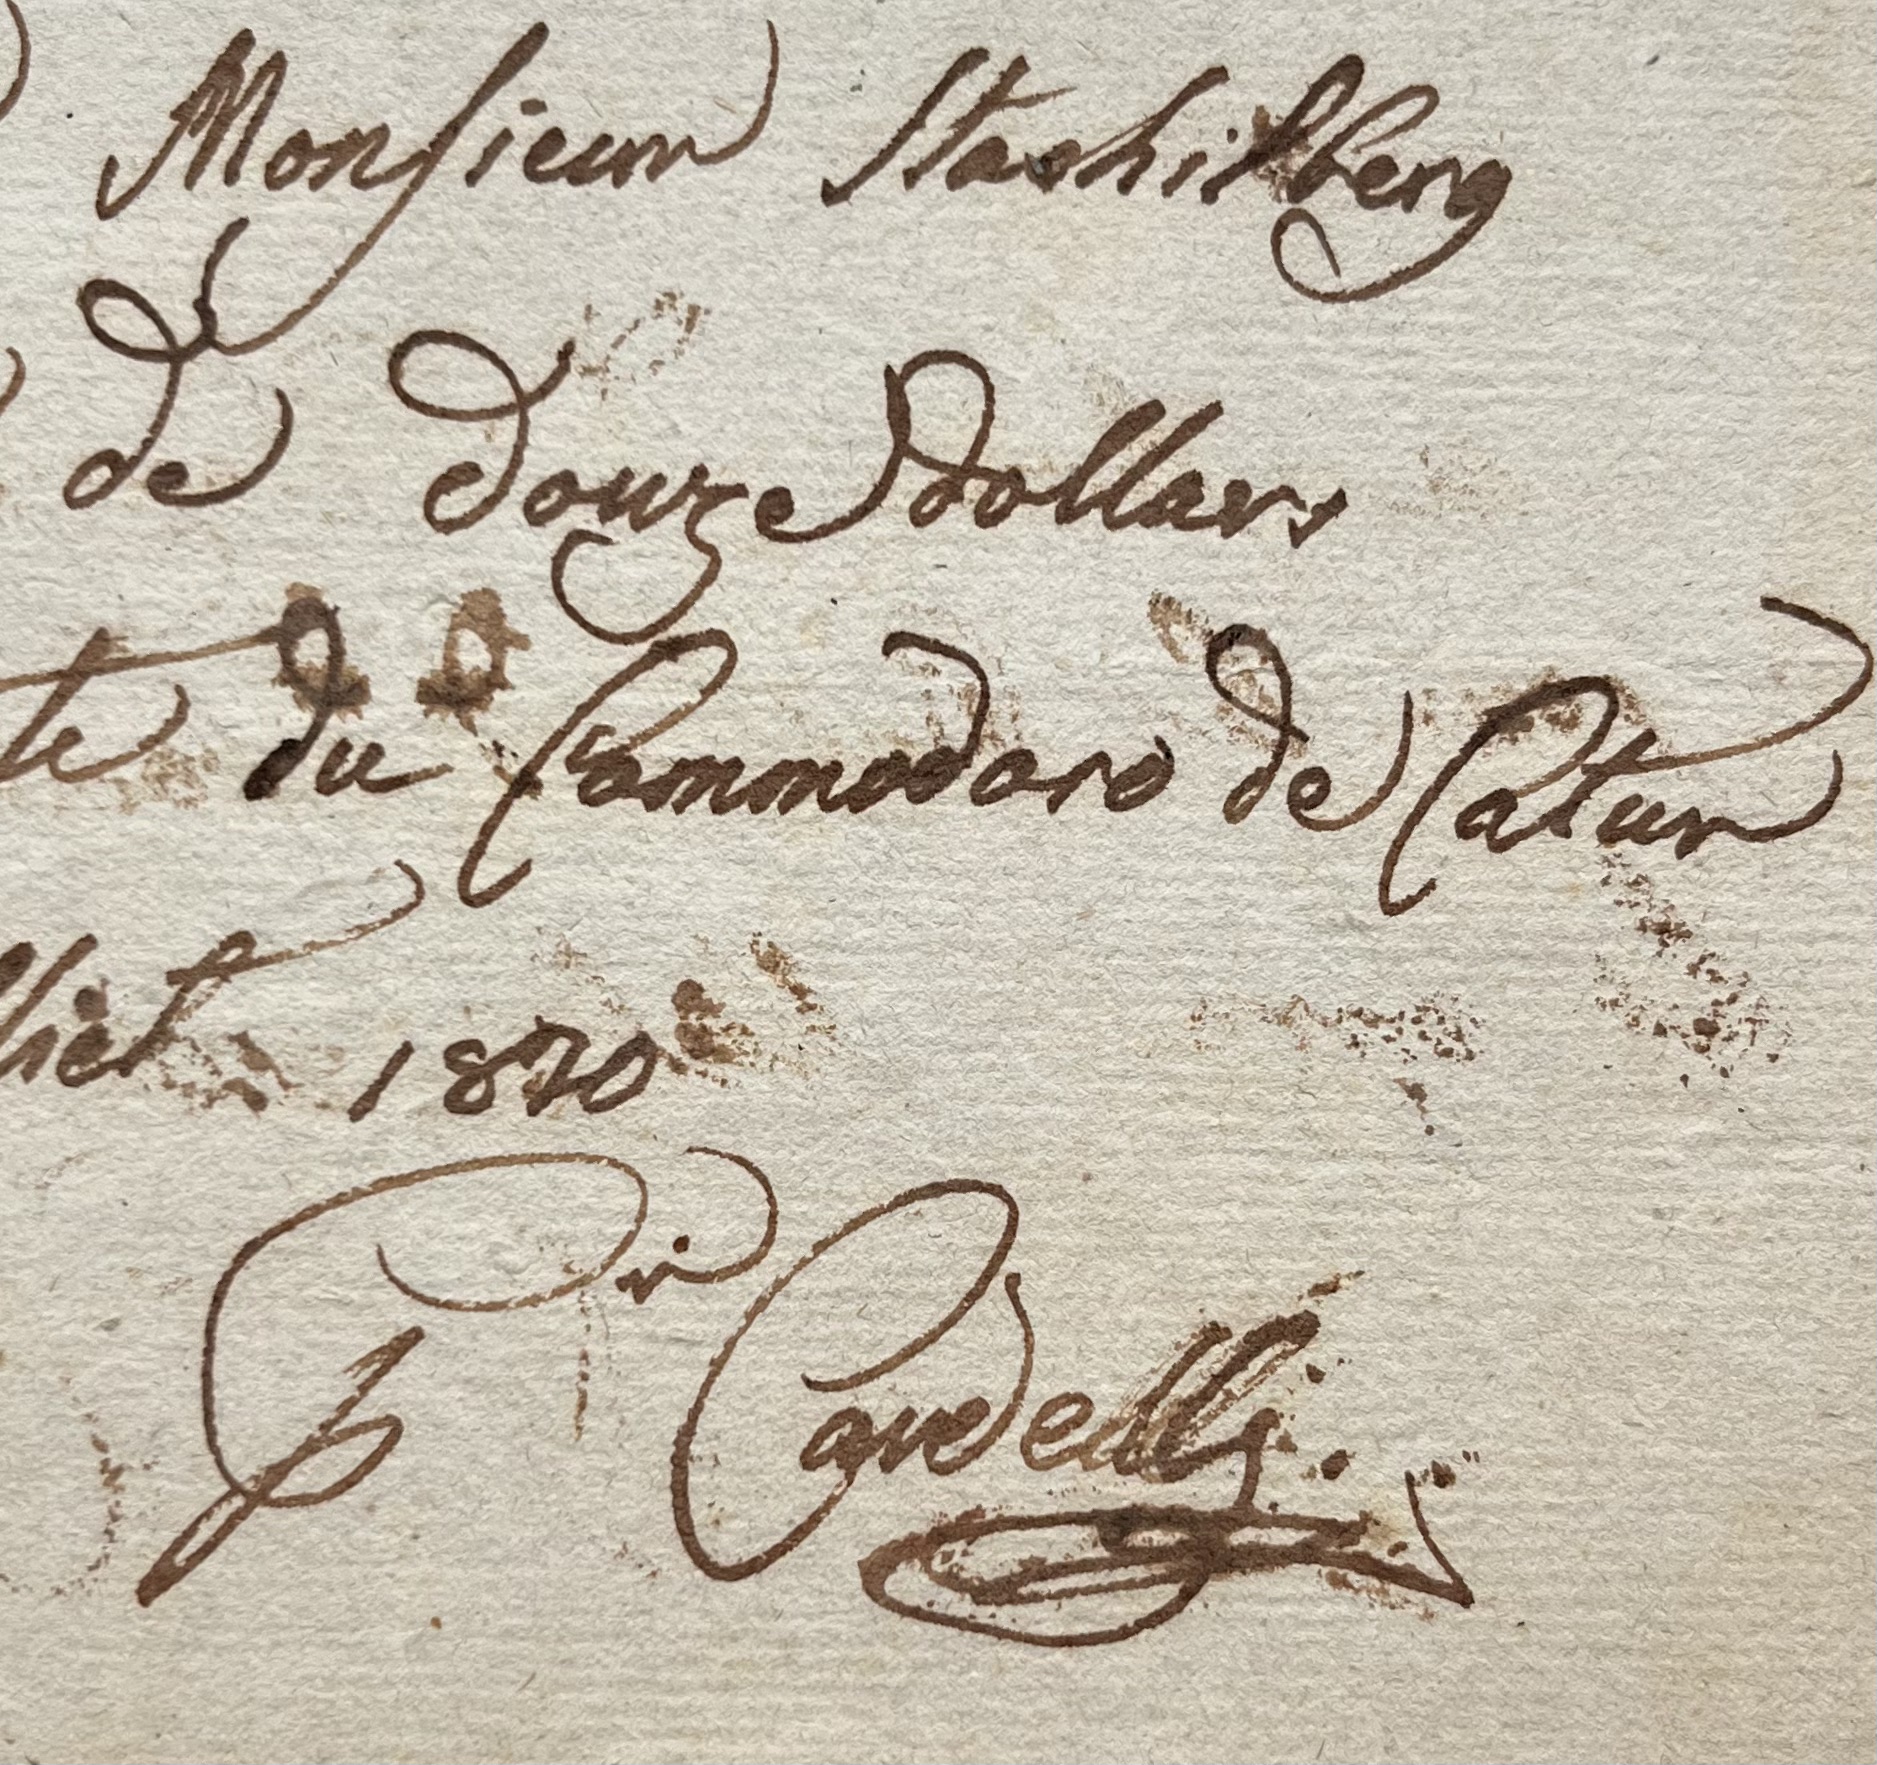 Monsieur Stashilberg
de douze dollars
te du Commodoro de Catur
lliet 1820
Pr Cardelli.